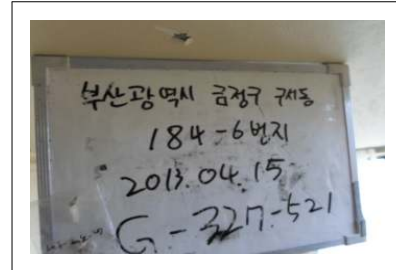 부산광역시 금정구 구서동
184-6번지
2013.04.15
G-327-521